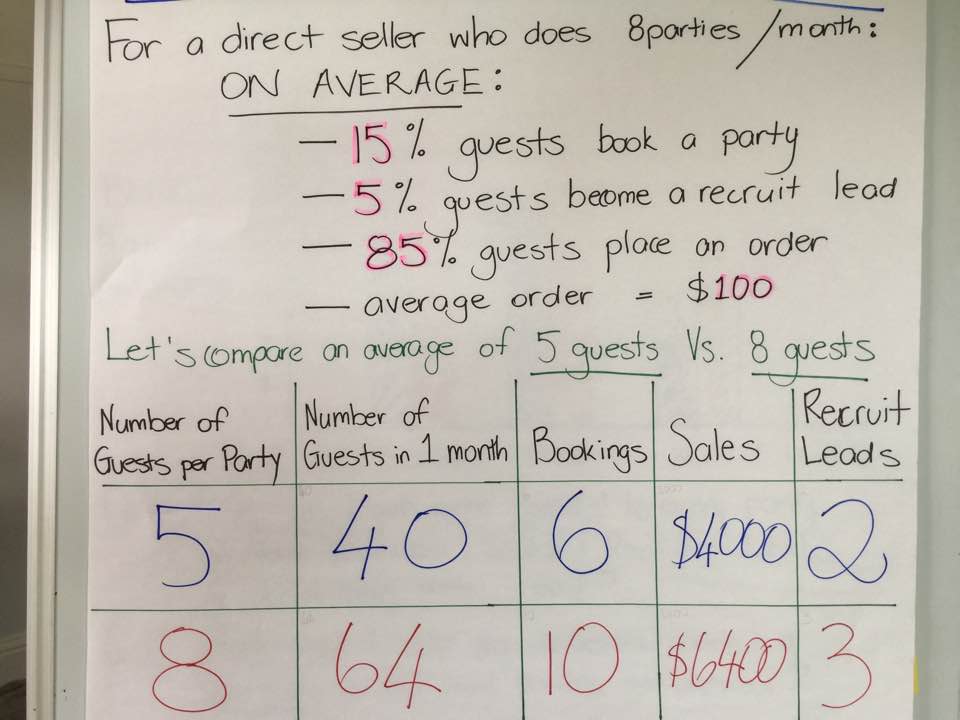 For a direct seller who does 8parties/month:
ON AVERAGE:
— 15% guests book a party
— 5% guests become a recruit lead
— 85% guests place an order
— average order = $100
Let's compare an average of 5 guests Vs. 8 guests
Number of Guests per Party | Number of Guests in 1 month | Bookings | Sales | Recruit Leads
5 40 6 $4000 2
8 64 10 $6400 3